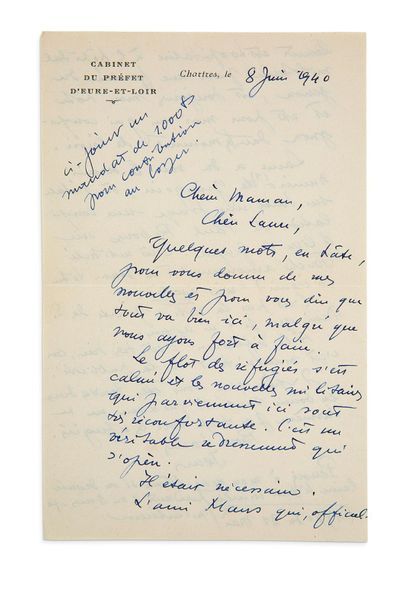 CABINET
DU PRÉFET
D'EURE-ET-LOIR
Chartres, le 8 Juin 1940
ci-joint un
mandat de 1.000 F
pour contribution
au loyer.
Chère Maman,
Chère Laure,
Quelques mots, en hâte,
pour vous donner de mes
nouvelles et pour vous dire que
tout va bien ici, malgré que
nous ayons fort à faire.
Le flot de réfugiés s'est
calmé et les nouvelles militaires
qui parviennent ici sont
très réconfortantes. C'est un
véritable redressement qui
s'opère.
Il était nécessaire.
L'ami Mans qui, officiel